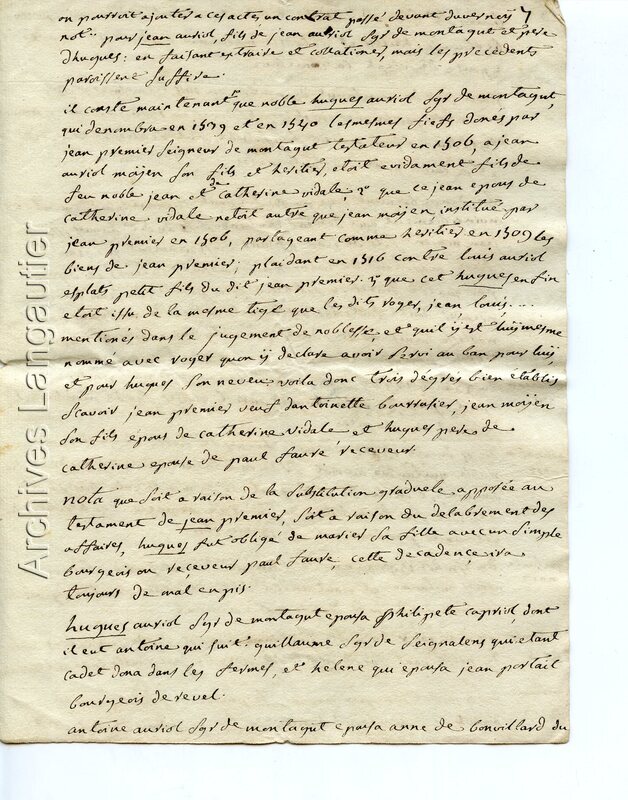 on pourroit ajouter a ces actes un contrat passé devant duvernoij 7
not.re pour jean auriol, fils de jean auriol sgr de montagut et pere
dhugues: en faisant extraire et collationer, mais les precedents
paroissent suffire.
il conste maintenant que noble hugues auriol sgr de montagut,
qui denombra en 1539 et en 1540 les mesmes fiefs donés par
jean premier seigneur de montagut testateur en 1506, a jean
auriol moijen son fils et heritier, etoit evidament fils de
feu noble jean et de catherine vidale, 2.o que ce jean epous de
catherine vidale netoit autre que jean moijen, institué par
jean premier en 1506, partageant comme heritier en 1509 les
biens de jean premier; plaidant en 1516 contre louis auriol
esplats petit fils du dit jean premier. 3.o que cet hugues enfin
etoit issu de la mesme tige que les dits roger, jean louis...
mentionés dans le jugement de noblesse, et quil ij est luij mesme
nommé avec roger quon ij declare avoir servi au ban pour luij,
et pour hugues son neveu voila donc trois dégrés bien établis
scavoir jean premier veuf dantoinette bourrasier, jean moijen
son fils epous de catherine vidale et hugues pere de
catherine epouse de paul faure receveur.
nota que soit a raison de la substitution graduele apposée au
testament de jean premier, soit a raison du delabrement des
affaires, hugues fut obligé de marier sa fille avec un simple
bourgeois ou réceveur paul faure, cette décadence ira
toujours de mal en pis.
hugues auriol sgr de montagut epousa philipete capriol, dont
il eut antoine qui suit. guillaume sgr de seignalens qui etant
cadet dona dans les fermes, et helene qui epousa jean portail
bourgeois de revel.
antoine auriol sgr de montagut epousa anne de bonvillard du
Archives Langautier